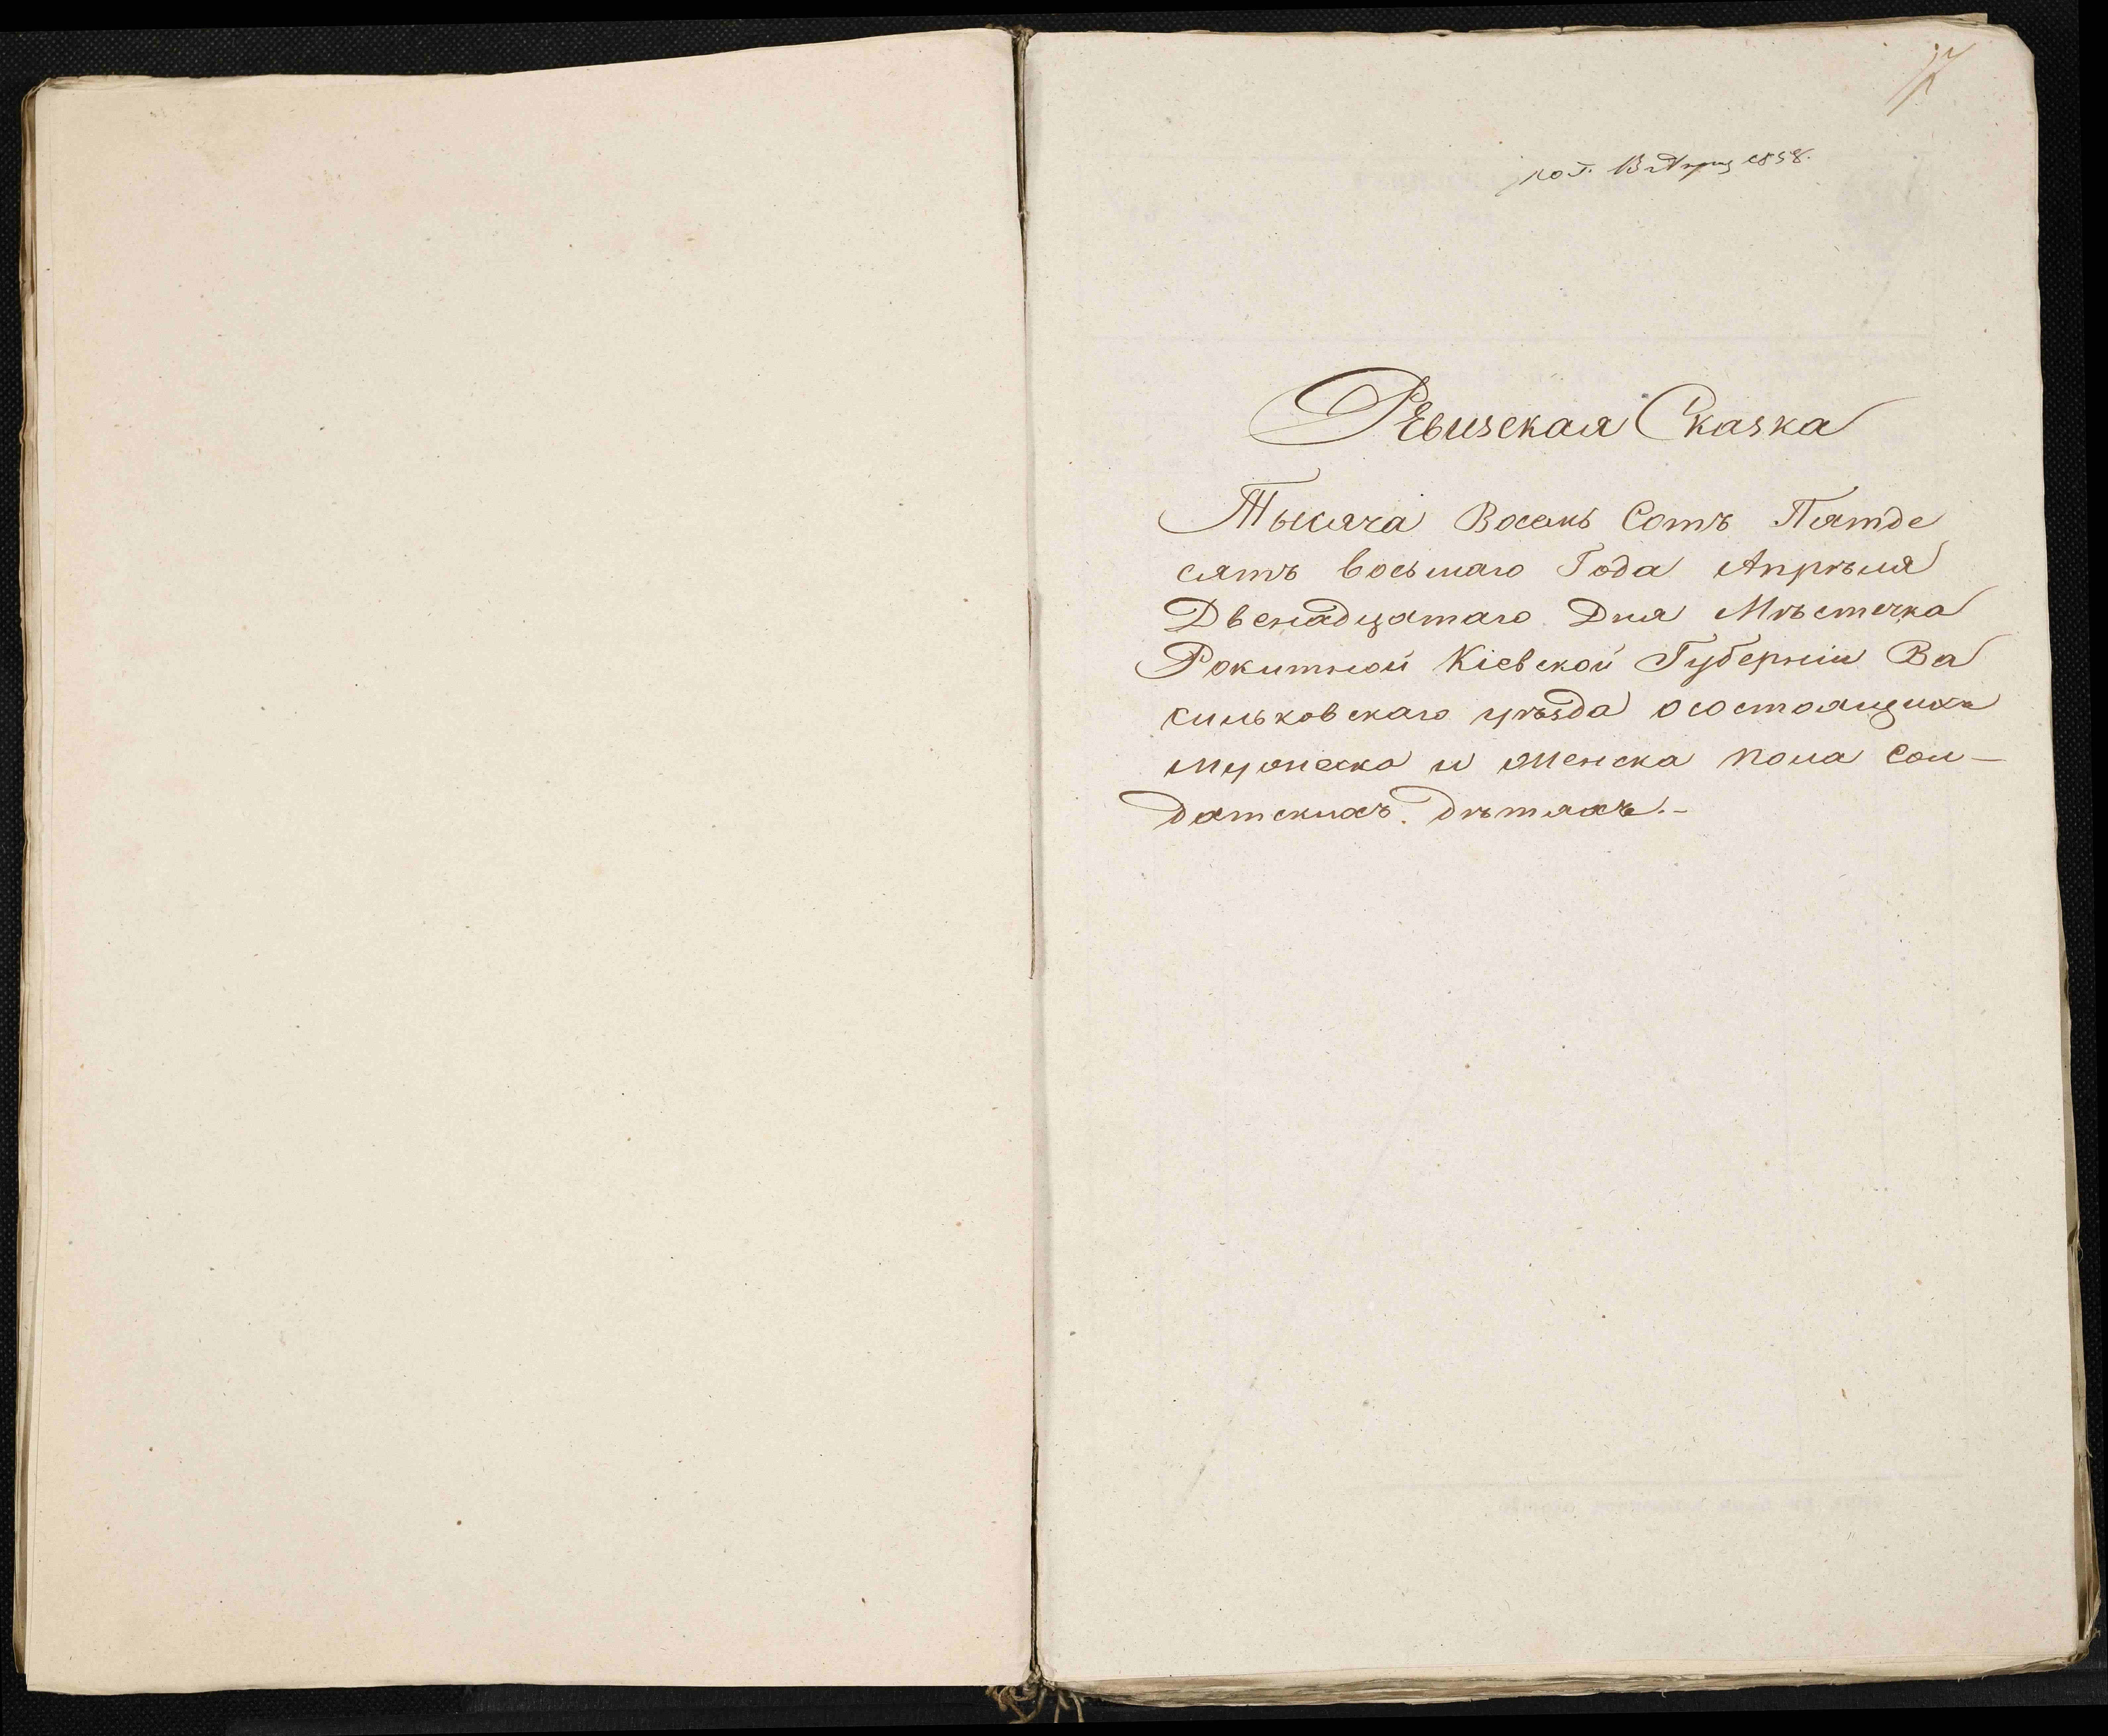 1858.
Ревизская Сказка
Тысяча Восемь Сотъ Пятде
сятъ восьмаго Года Апрѣля
Двенадцатаго Дня Мѣстечка
Рокитной Кіевской Губерніи Ва
сильковскаго уѣзда осостоящихъ
мужеска и женска пола Сол-
датскихъ дѣтяхъ.-